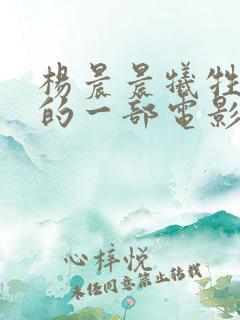 杨晨晨犠牲
的一部电影
心梓悦
未经同意禁止转载